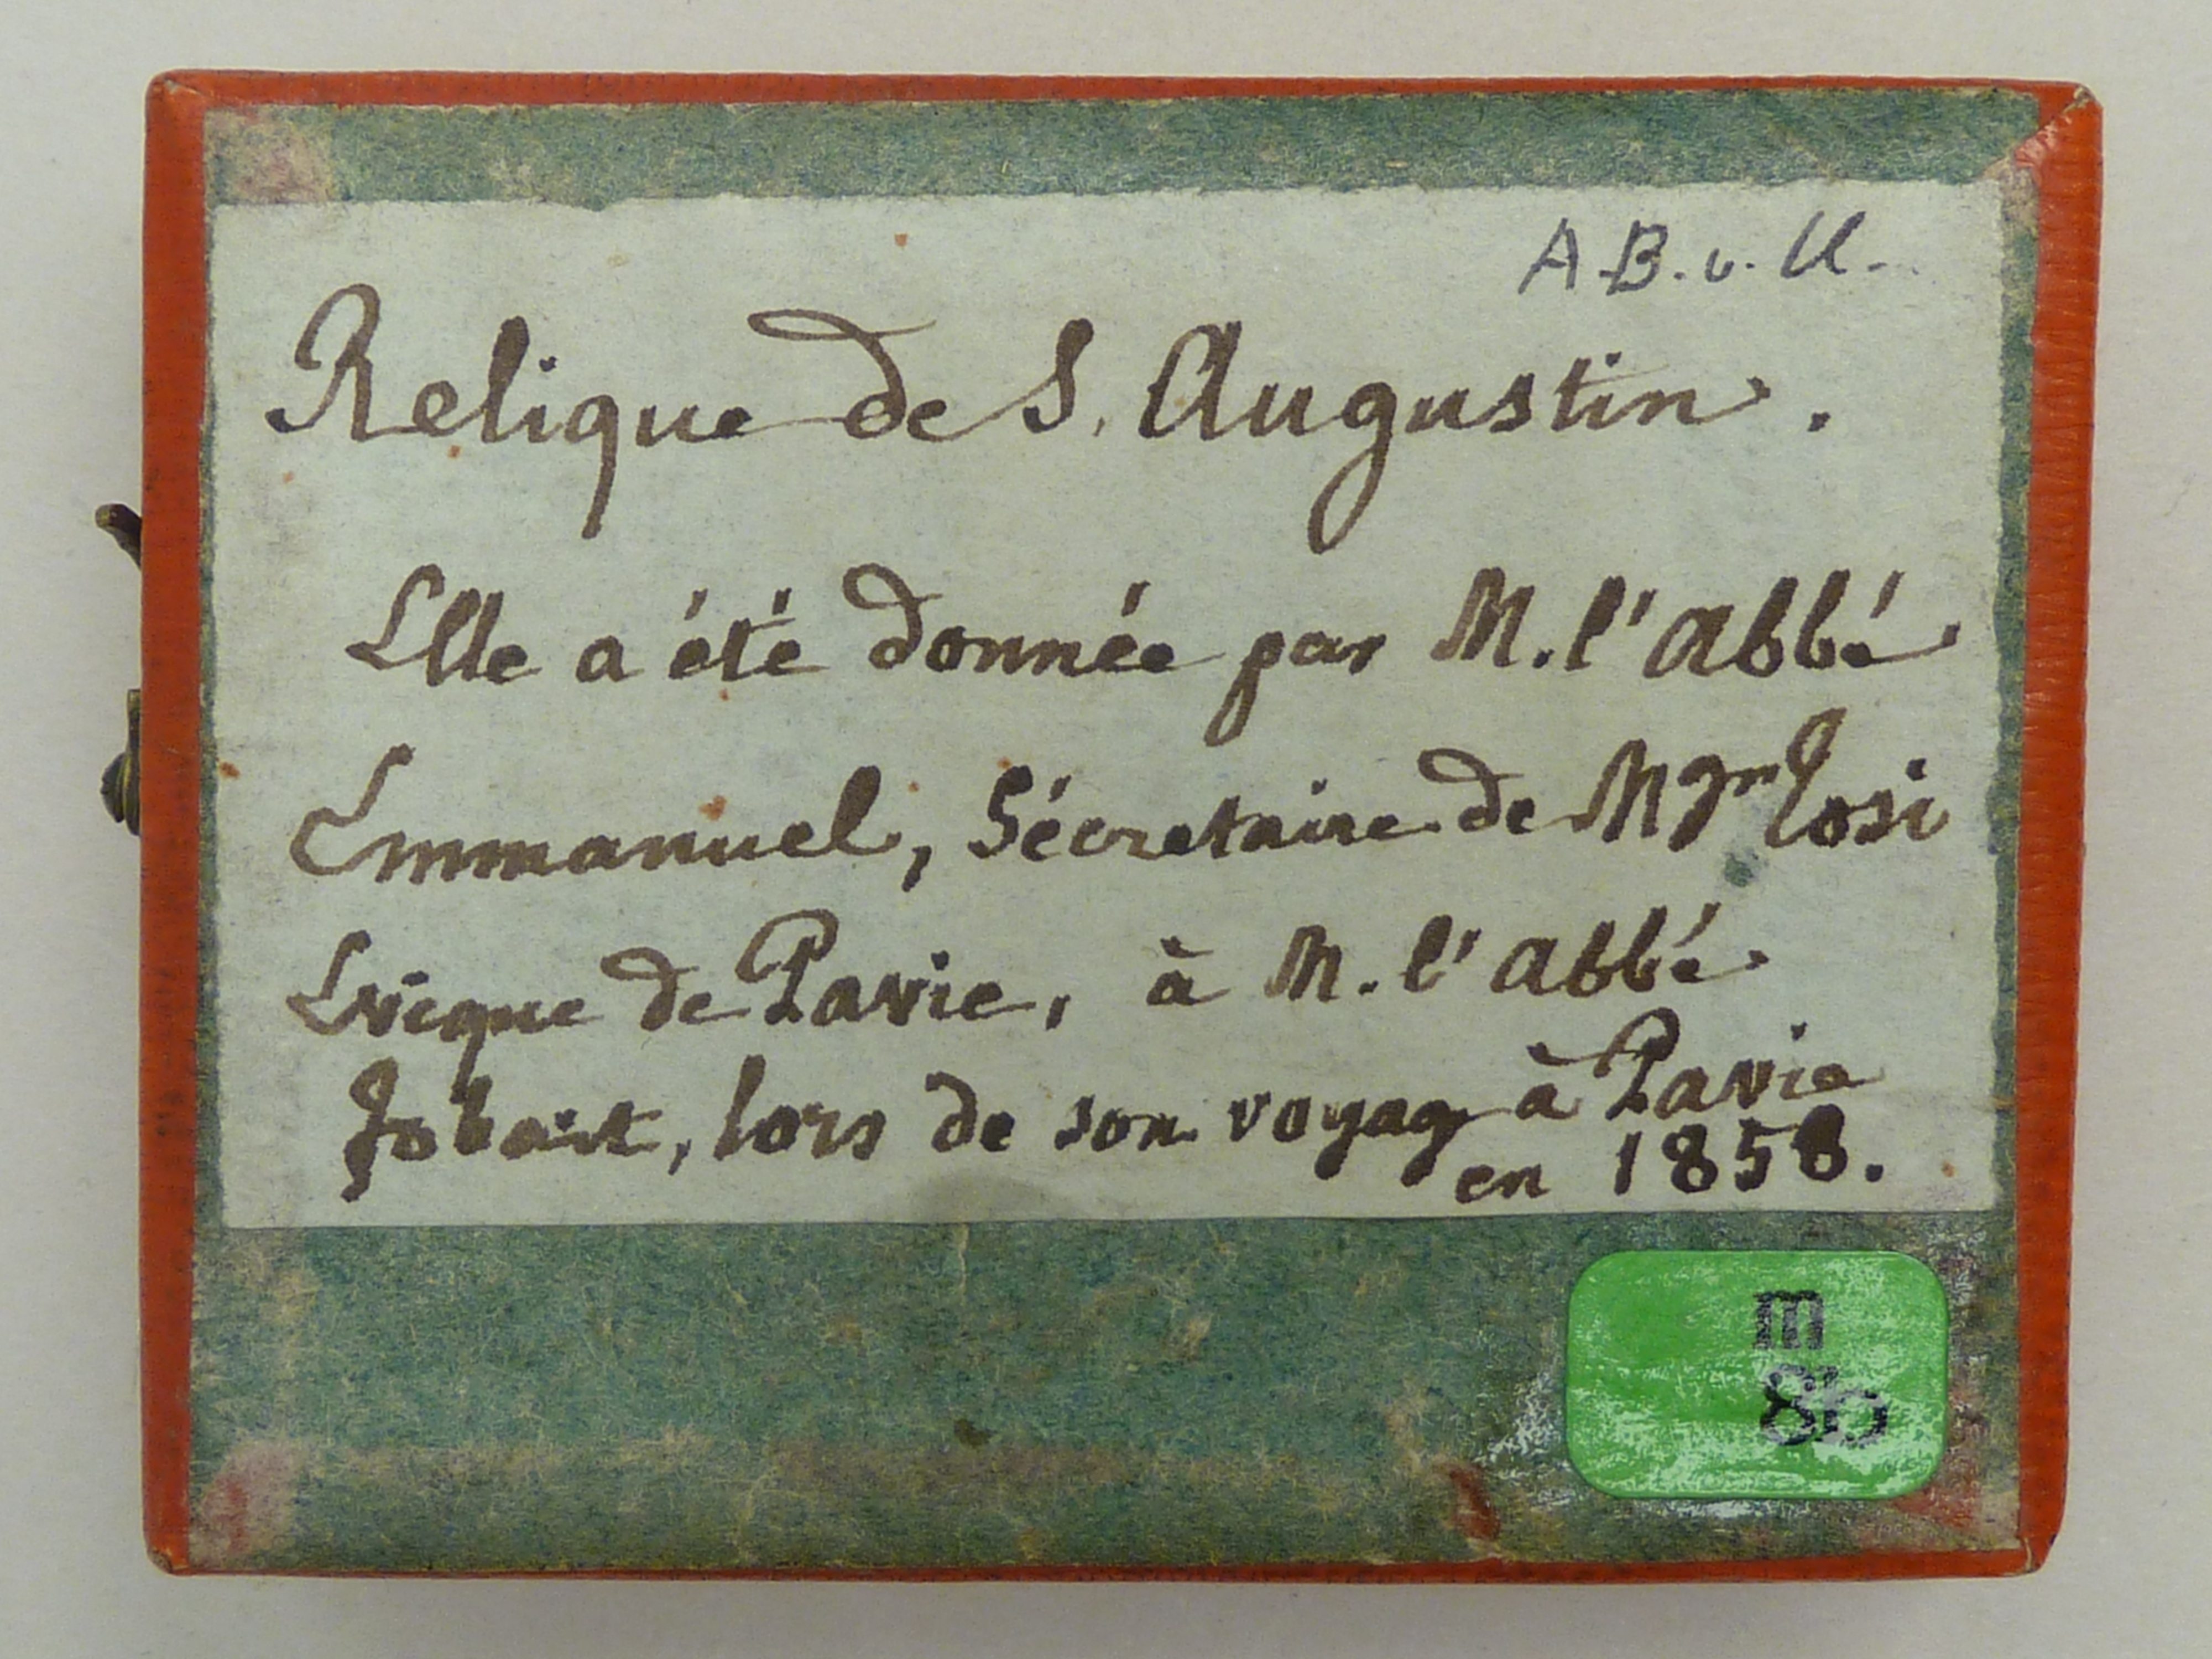 A.B.v.U.
Relique de S. Augustin.
Elle a été donnée par M. l'abbé
Emmanuel, Sécretaire de Mgr Tosi
Evêque de Pavie, à M. l'abbé
lors de son voyage à Pavie
en 1858.
m
8b